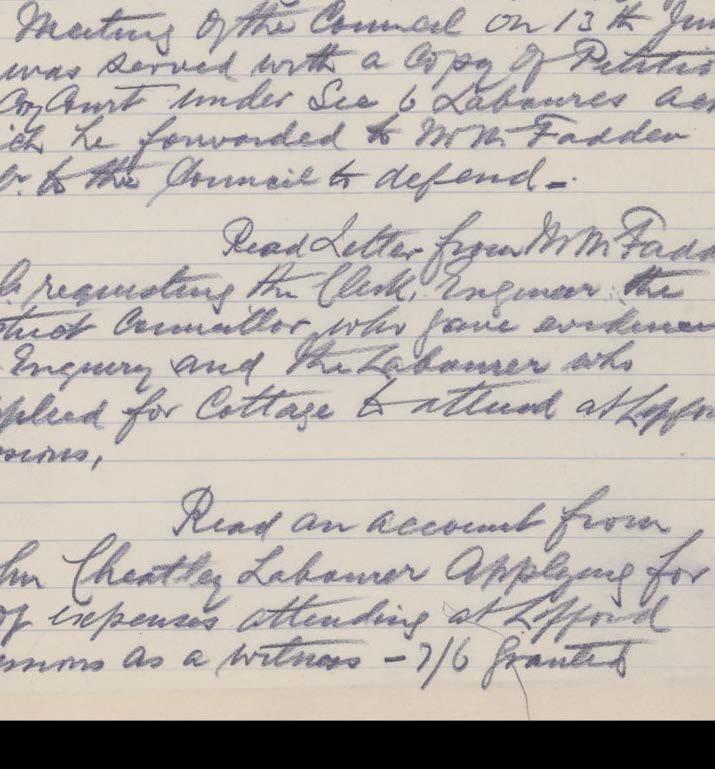 Meeting of the Council on 13th Jun
was served with a Copy of Petitio
Court under Sec 6 Labourers act
ich he forwarded to Mr McFadden
r. to the Council to defend -
Read Letter from Mr McFadd
requesting the Clerk, Engineer the
strict Councillor who gave evidence
Enquiry and the Labourer who
pplied for Cottage to attend at Liffor
ssions,
Read an account from
hn Cheatley Labourer applying for
of expenses attending at Lifford
essions as a witness - 7/6 granted